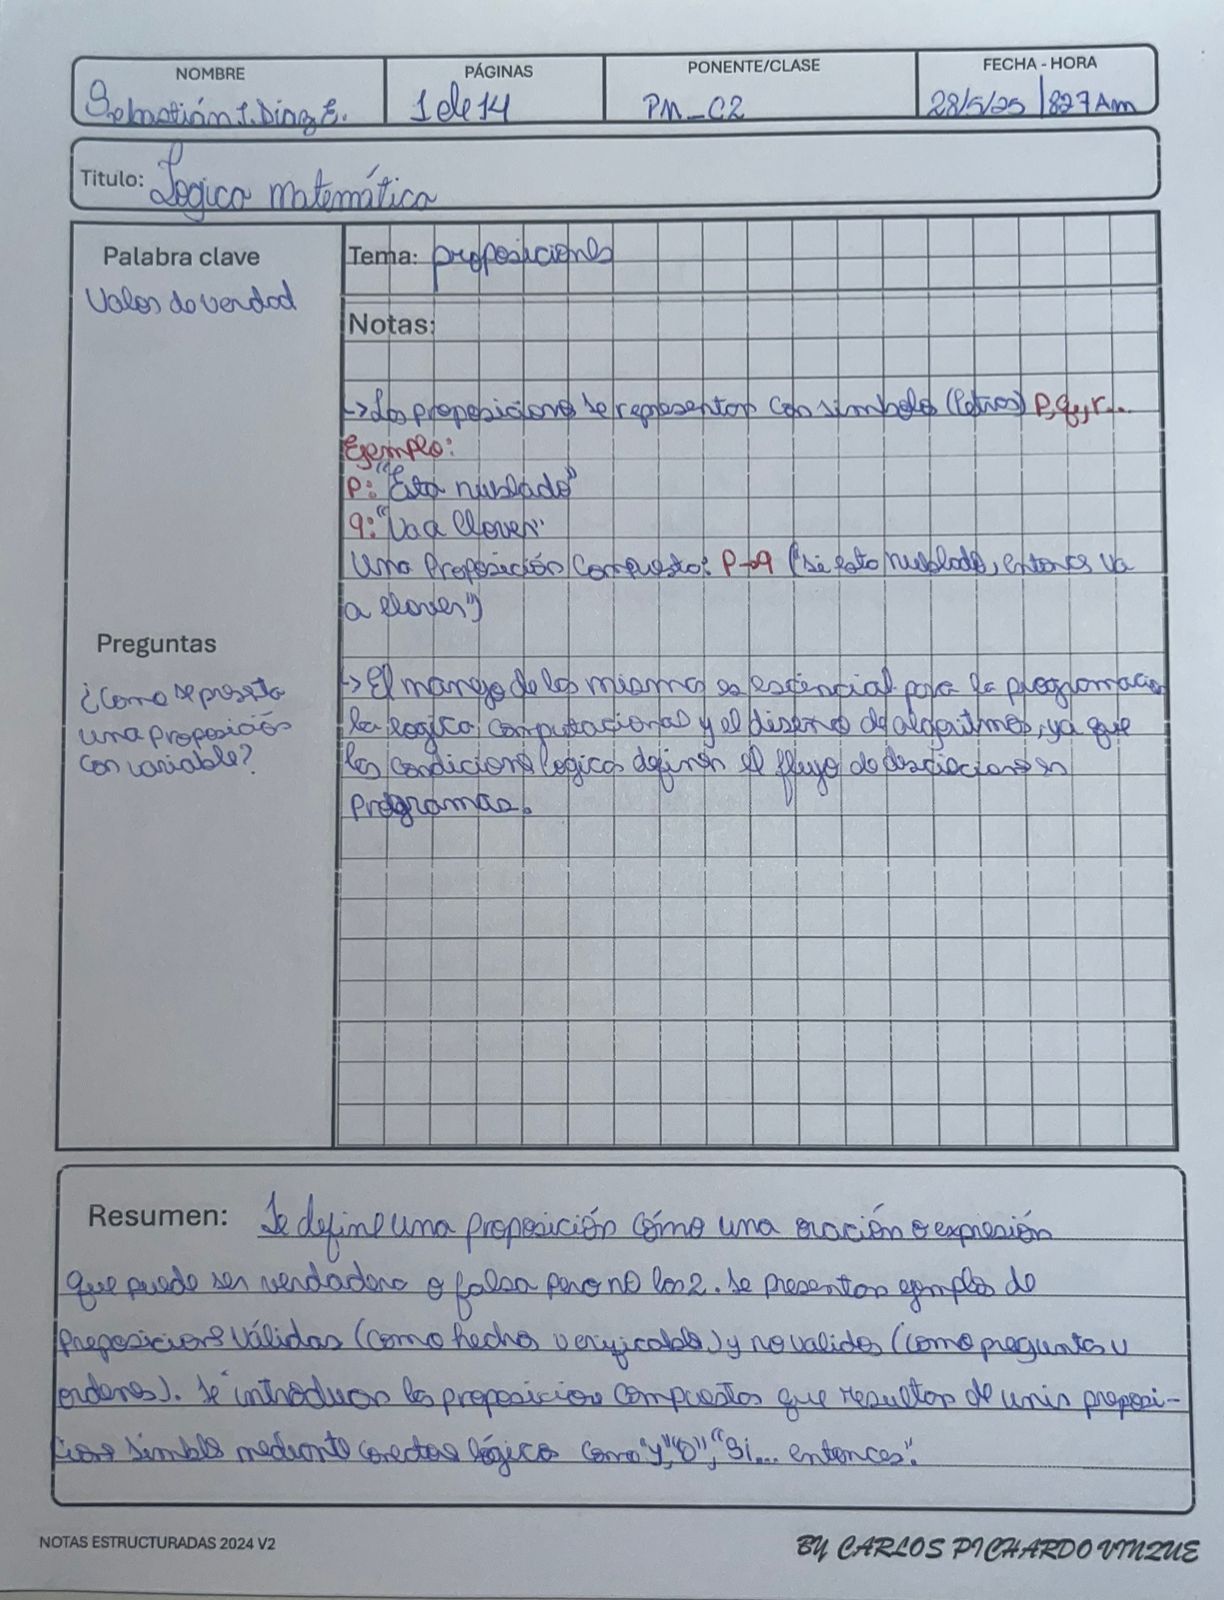 NOMBRE PÁGINAS PONENTE/CLASE FECHA - HORA
Sebastián J. Díaz E. 1 de 14 PM_C2 28/5/25 | 827 Am
Titulo: Logica matemática
Palabra clave
Valor de verdad
Tema: proposiciones
Notas:
-> Las proposiciones se representan con simbolo (letras) p,q,r...
Ejemplo:
P: "Está nublado"
q: "Va a llover"
Una Proposición Compuesta: P→q ("si esta nublado, entonces va
a llover")
Preguntas
¿Como se presenta
una proposición
con variable?
-> El manejo de los mismos es esencial para la programacion
la logica computacional y el diseño de algoritmos, ya que
las condiciones logicas definen el flujo de desiciones en
Programas.
Resumen: Se define una proposición cómo una oración o expresión
que puede ser verdadera o falsa pero no los 2. Se presentan ejemplos de
preposiciones válidas (como hechos verificables) y no validos (como pregunta u
ordenes). Se introducen las proposiciones compuestas que resultan de unir proposi-
ciones simbles mediante conectores lógicos como "y", "O", "Si... entonces".
NOTAS ESTRUCTURADAS 2024 V2
BY CARLOS PICHARDO VINZUE